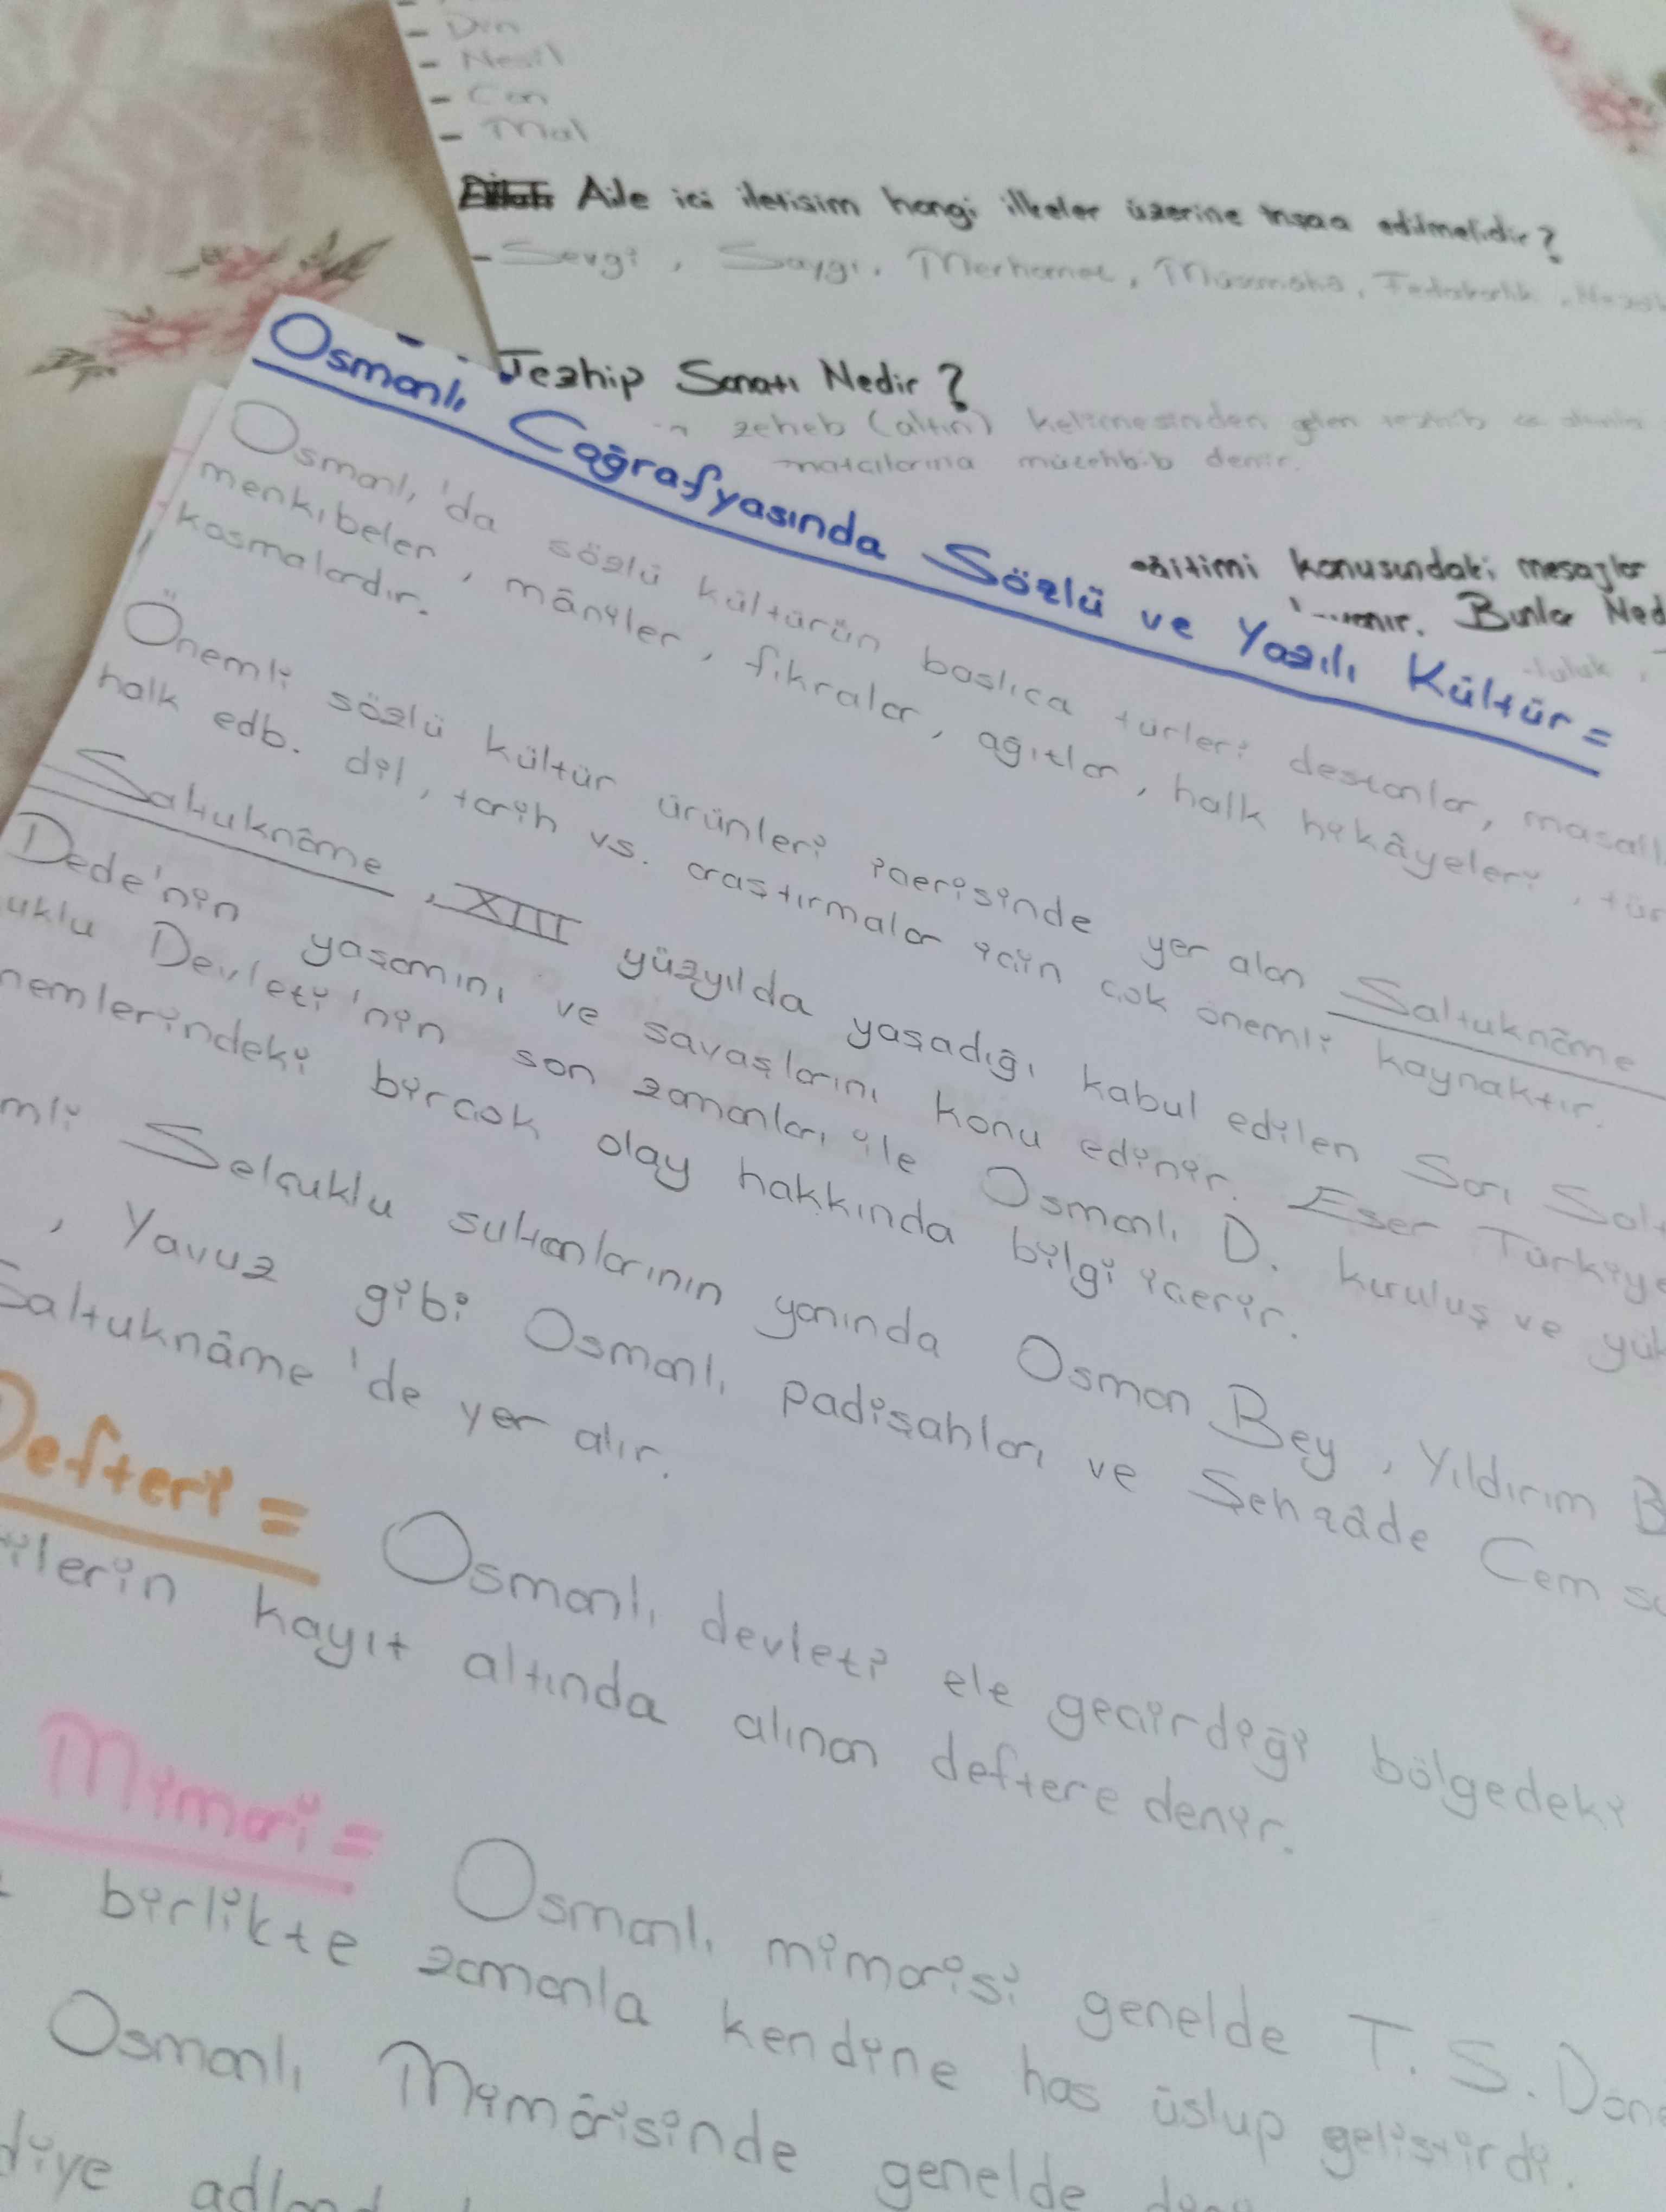 - Din
- Nesil
- Can
- Mal
Aile ici iletisim hangi ilkeler üzerine inşaa edilmelidir?
- Sevgi, Saygı, Merhamet, Müsamaha, Fedakarlık
Tezhip Sanatı Nedir?
zeheb (altın) kelimesinden gelen
demir.
eğitimi konusundaki mesajlar
Bunlar Ned
Osmanlı Coğrafyasında Sözlü ve Yazılı Kültür =
Osmanlı'da sözlü kültürün baslıca türleri destanlar, masall
menkıbeler, mâniler, fıkralar, ağıtlar, halk hikâyeleri, tür
kosmalardır.
Önemli sözlü kültür ürünleri içerisinde yer alan Saltuknâme
halk edb. dil, tarih vs. araştırmalar için çok önemli kaynaktır.
Saltuknâme, XIII yüzyılda yaşadığı kabul edilen Sarı Salt
Dede'nin yaşamını ve savaşlarını konu edinir. Eser Türkiye
uklu Devleti'nin son zamanları ile Osmanlı D. kuruluş ve yük
nemlerindeki birçok olay hakkında bilgi içerir.
mli Selçuklu sultanlarının yanında Osman Bey, Yıldırım B
, Yavuz gibi Osmanlı padişahları ve Şehzâde Cem su
Saltuknâme'de yer alır.
Defteri = Osmanlı devleti ele geçirdiği bölgedeki
ilerin kayıt altında alınan deftere denir.
Mimari = Osmanlı mimarisi genelde T. S. Döne
birlikte zamanla kendine has üslup geliştirdi.
Osmanlı Mimârisinde genelde
diye adland